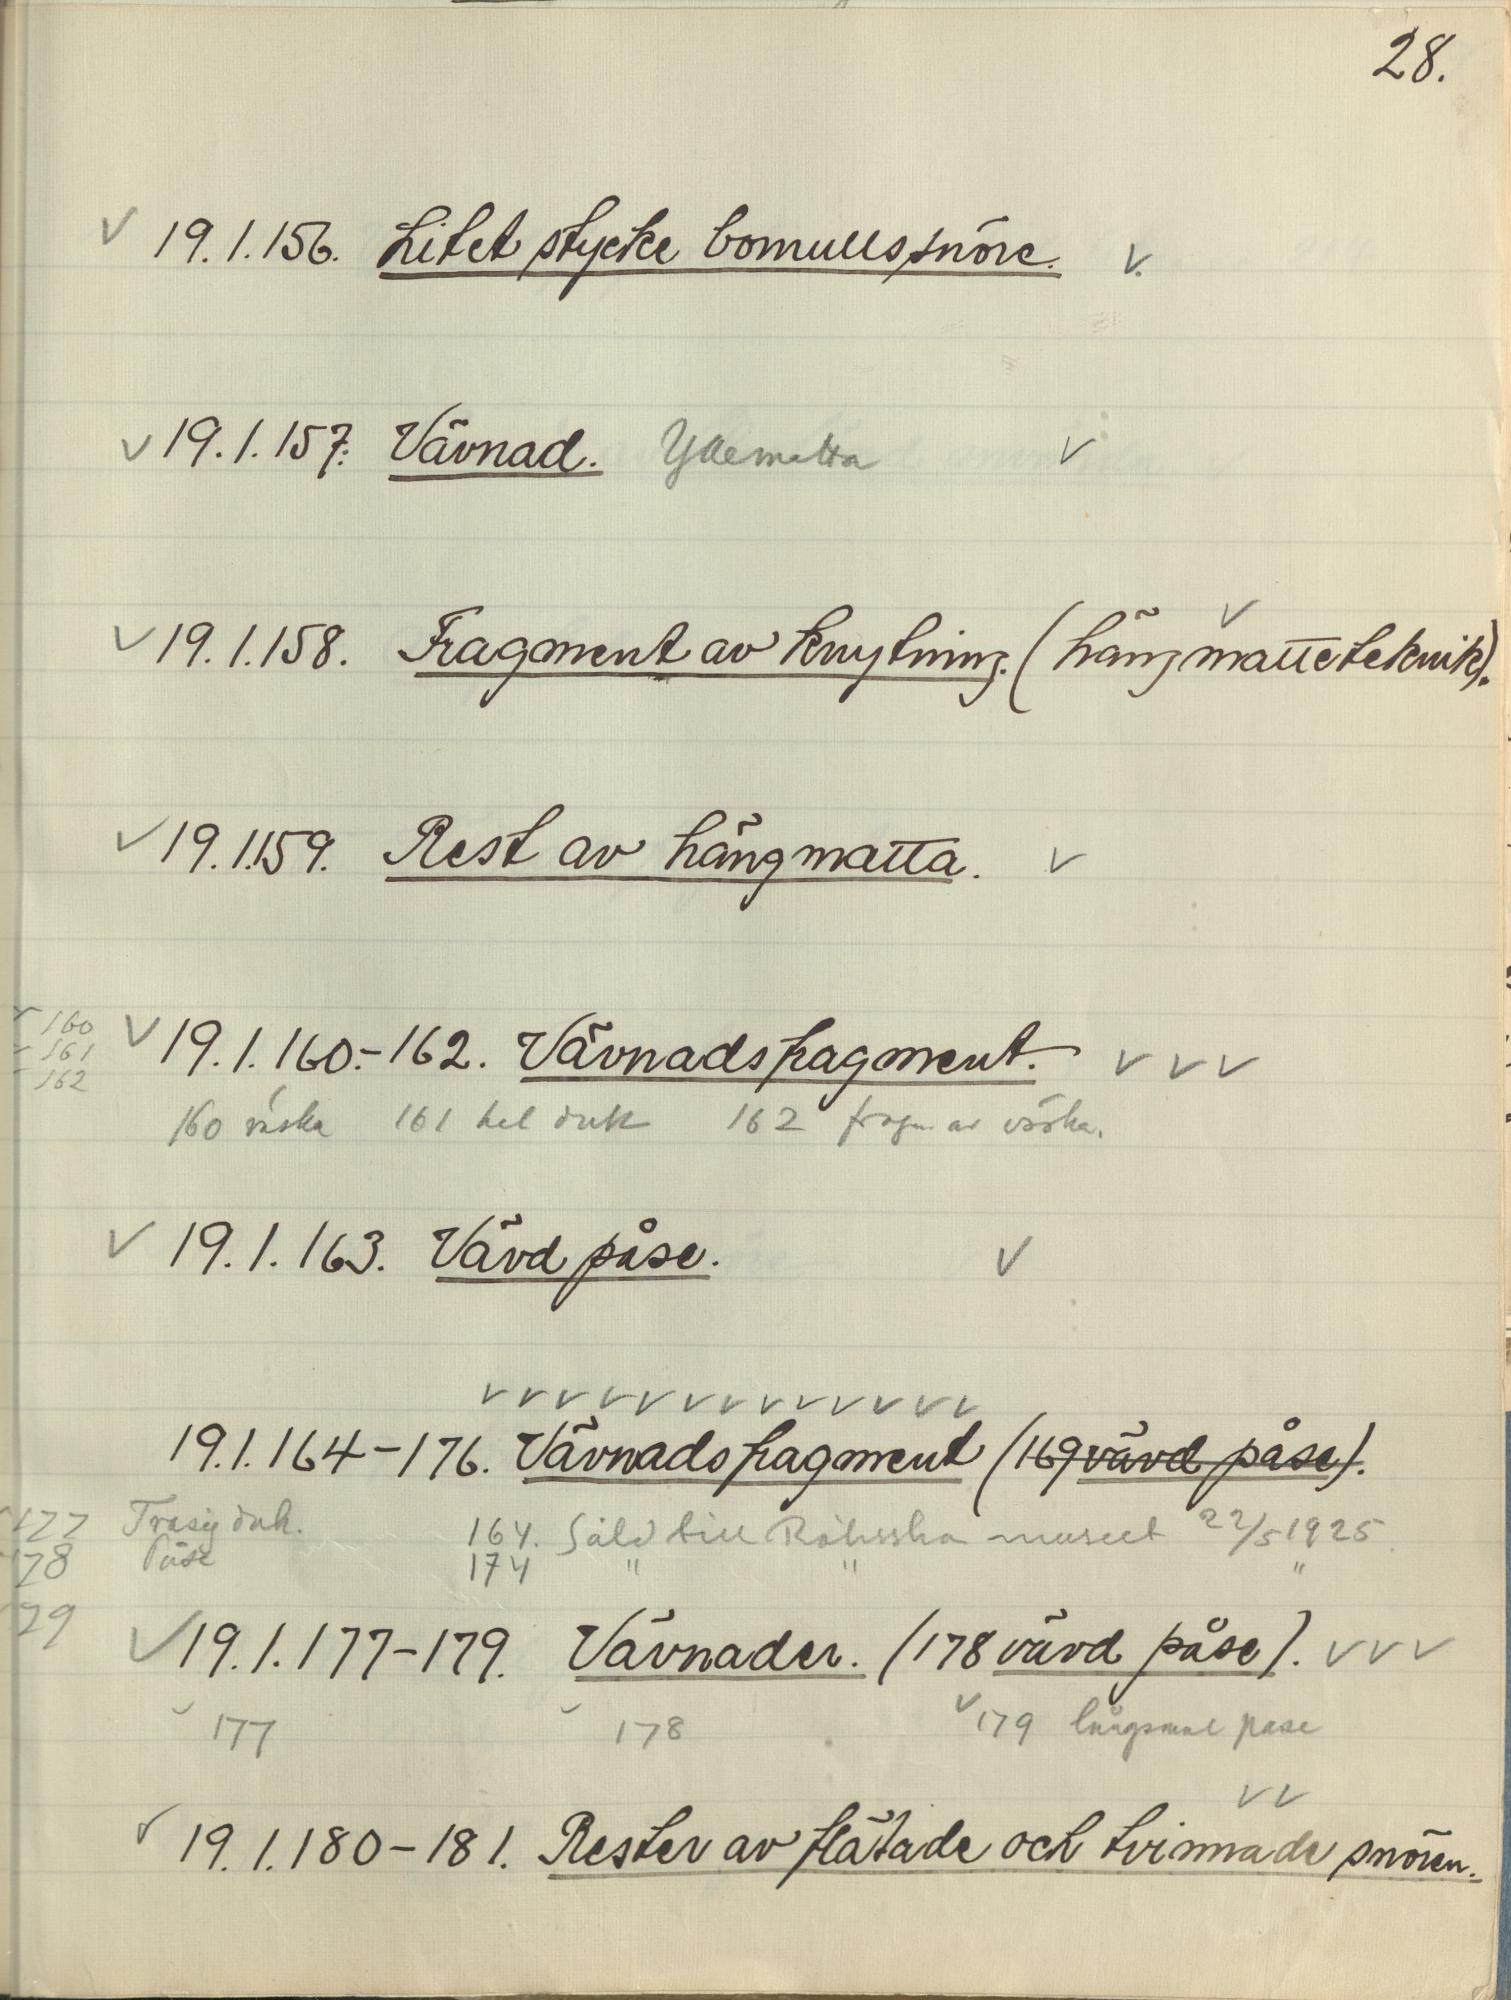 28.
✓ 19.1.156. Litet stycke bomullssnöre. ✓
✓ 19.1.157. Vävnad. Yllematta ✓
✓ 19.1.158. Fragment av knytning. (hängmatteteknik). ✓
✓ 19.1.159. Rest av hängmatta. ✓
160
161
162
✓ 19.1.160.-162. Vävnadsfragment. ✓ ✓ ✓
160 väska 161 hel duk 162 fragm. av väska.
✓ 19.1.163. Vävd påse. ✓
✓ ✓ ✓ ✓ ✓ ✓ ✓ ✓ ✓ ✓ ✓ ✓ ✓
19.1.164-176. Vävnadsfragment (169 vävd påse).
177 Trasig duk. 164. Såld till Röhsska museet 22/5 1925.
178 Påse 174 " " "
179
✓ 19.1.177-179. Vävnader. (178 vävd påse). ✓ ✓ ✓
✓ 177 ✓ 178 ✓ 179 långsmal påse
✓ ✓
✓ 19.1.180-181. Rester av flätade och tvinnade snören.